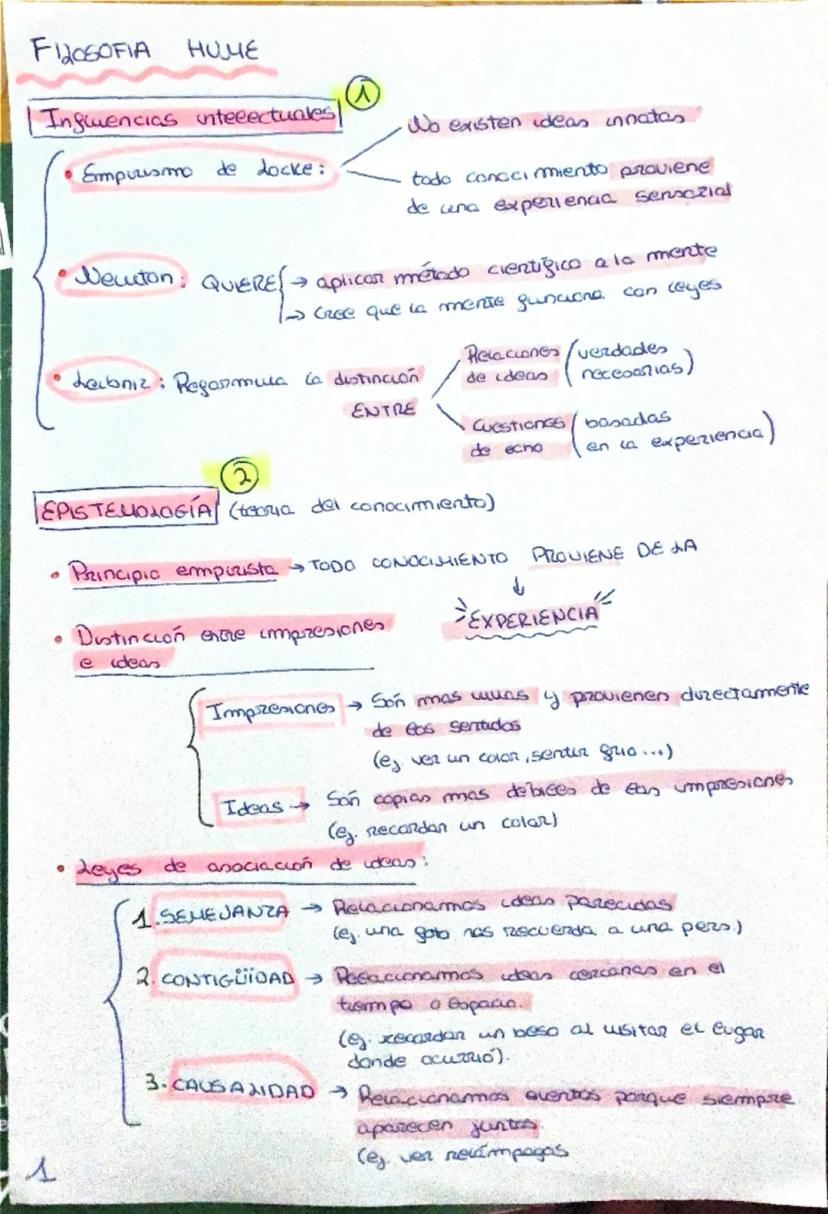 FILOSOFIA HUME
1
Influencias intelectuales
• Empirismo de Locke:
No existen ideas innatas
todo conocimiento proviene
de una experiencia sensorial
• Newton: QUIERE → aplicar método científico a la mente
→ Cree que la mente funciona con leyes
• Leibniz: Reformula la distinción
ENTRE
Relaciones (verdades
de ideas necesarias)
Cuestiones (basadas
de echo en la experiencia)
2
EPISTEMOLOGÍA (teoria del conocimiento)
• Principio empirista → TODO CONOCIMIENTO PROVIENE DE LA
↓
EXPERIENCIA
• Distinción entre impresiones
e ideas
Impresiones → Són mas vivas y provienen directamente
de los sentidos
(ej. ver un color, sentir frio...)
Ideas → Són copias mas debiles de las impresiones
(ej. recordar un color)
• Leyes de asociación de ideas:
1. SEMEJANZA → Relacionamos ideas parecidas
(ej. una foto nos recuerda a una pers.)
2. CONTIGÜIDAD → Relacionamos ideas cercanas en el
tiempo o espacio.
(ej. recordar un beso al visitar el lugar
donde ocurrió).
3. CAUSALIDAD → Relacionamos eventos porque siempre
aparecen juntos.
(ej. ver relámpagos
1